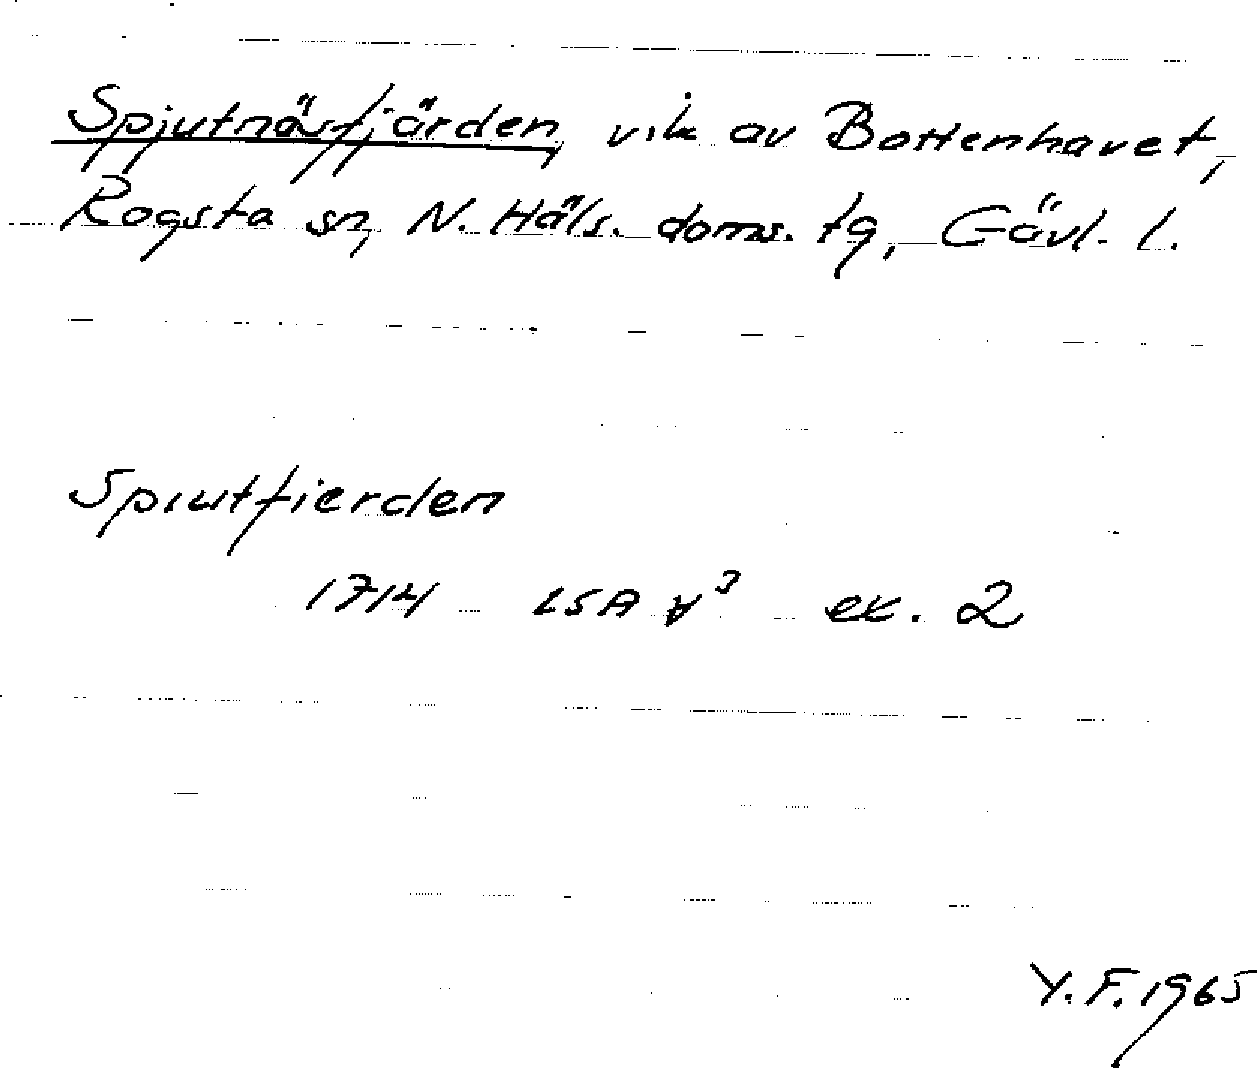 Spjutnäsfjärden, vik av Bottenhavet,
Rogsta sn, N. Häls. doms. tg, Gävl. l.
Spiutfierden
1714 LSA ¥³ ex. 2
Y. F. 1965